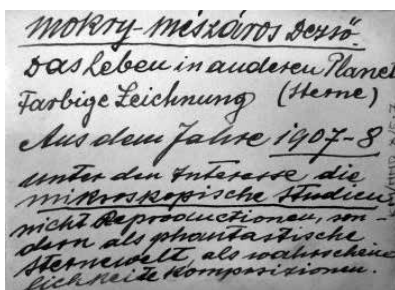 Mokry-Mészáros Dezsö.
Das Leben in anderen Planet
Farbige Zeichnung (Sterne)
Aus dem Jahre 1907-8
unter den Interesse die
mikroskopische Studien
nicht Reproductionen, son-
dern als phantastische
Sternewelt, als wahrschein
lichkeite Komposizionen.